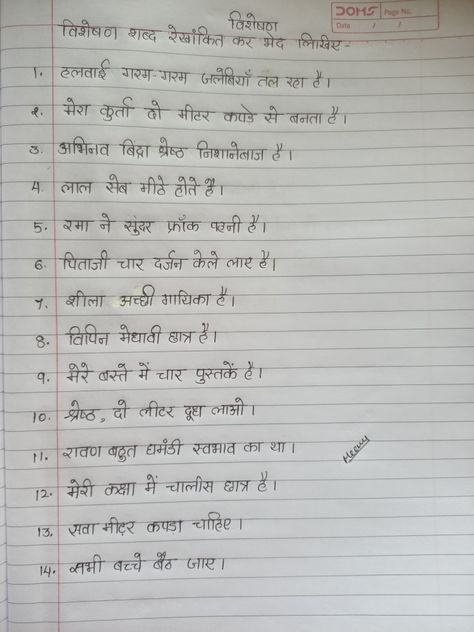 DOMS Page No.
Date / /
विशेषण
विशेषण शब्द रेखांकित कर भेद लिखिए -
1. हलवाई गरम-गरम जलेबियाँ तल रहा है।
2. मेरा कुर्ता दो मीटर कपडे से बनता है।
3. अभिनव बिंद्रा श्रेष्ठ निशानेबाज है।
4. लाल सेब मीठे होते है।
5. रमा ने सुंदर फ्रॉक पहनी है।
6. पिताजी चार दर्जन केले लाए है।
7. शीला अच्छी गायिका है।
8. विपिन मेधावी छात्र है।
9. मेरे बस्ते में चार पुस्तकें है।
10. श्रेष्ठ, दो लीटर दूध लाओ।
11. रावण बहुत घमंडी स्वभाव का था।
12. मेरी कक्षा में चालीस छात्र है।
13. सवा मीटर कपडा चाहिए।
14. सभी बच्चे बैठ जाए।